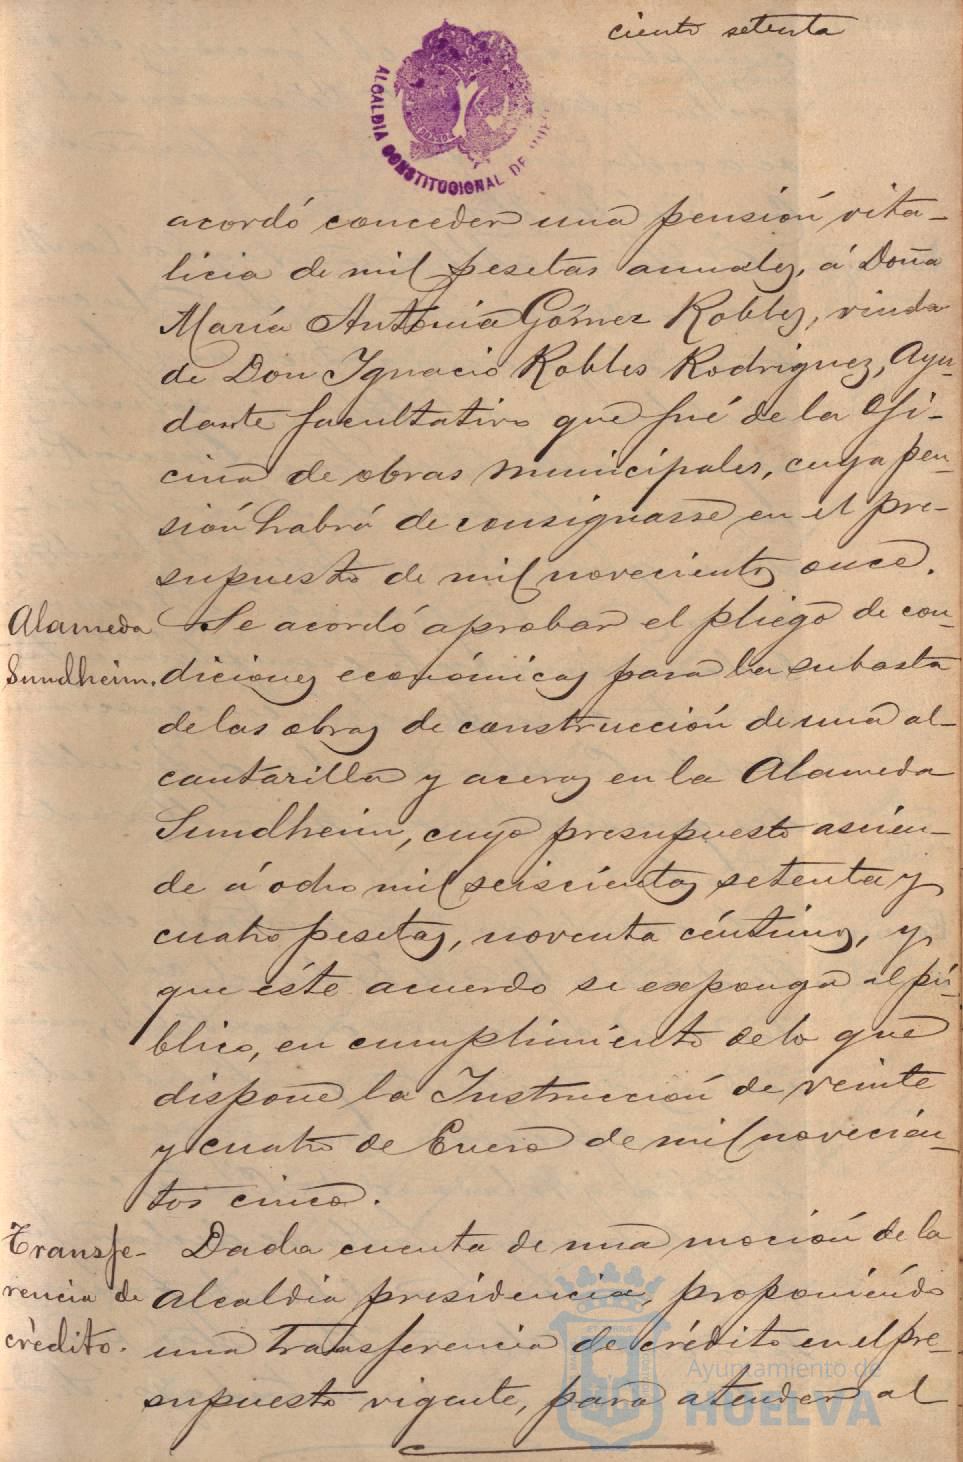 ciento setenta
ALCALDIA CONSTITUCIONAL DE
acordó conceder una pensión vita-
licia de mil pesetas anuales, á Doña
María Antonia Gómez Robles, viuda
de Don Ignacio Robles Rodriguez, Ayu-
dante facultativo que fué de la Ofi-
cina de obras municipales, cuya pen-
sión habrá de consignarse en el pre-
supuesto de mil novecientos once.
Alameda
Sundheim.
Se acordó aprobar el pliego de con-
diciones económicas para la subasta
de las obras de construcción de una al-
cantarilla y aceras en la Alameda
Sundheim, cuyo presupuesto ascien-
de á ocho mil seiscientas setenta y
cuatro pesetas, noventa céntimos, y
que éste acuerdo se exponga al pú-
blico, en cumplimiento de lo que
dispone la Instrucción de veinte
y cuatro de Enero de mil novecien-
tos cinco.
Transfe-
rencia de
crédito.
Dada cuenta de una moción de la
Alcaldia presidencia, proponiendo
una transferencia de crédito en el pre-
supuesto vigente, para atender al
Ayuntamiento de
HUELVA